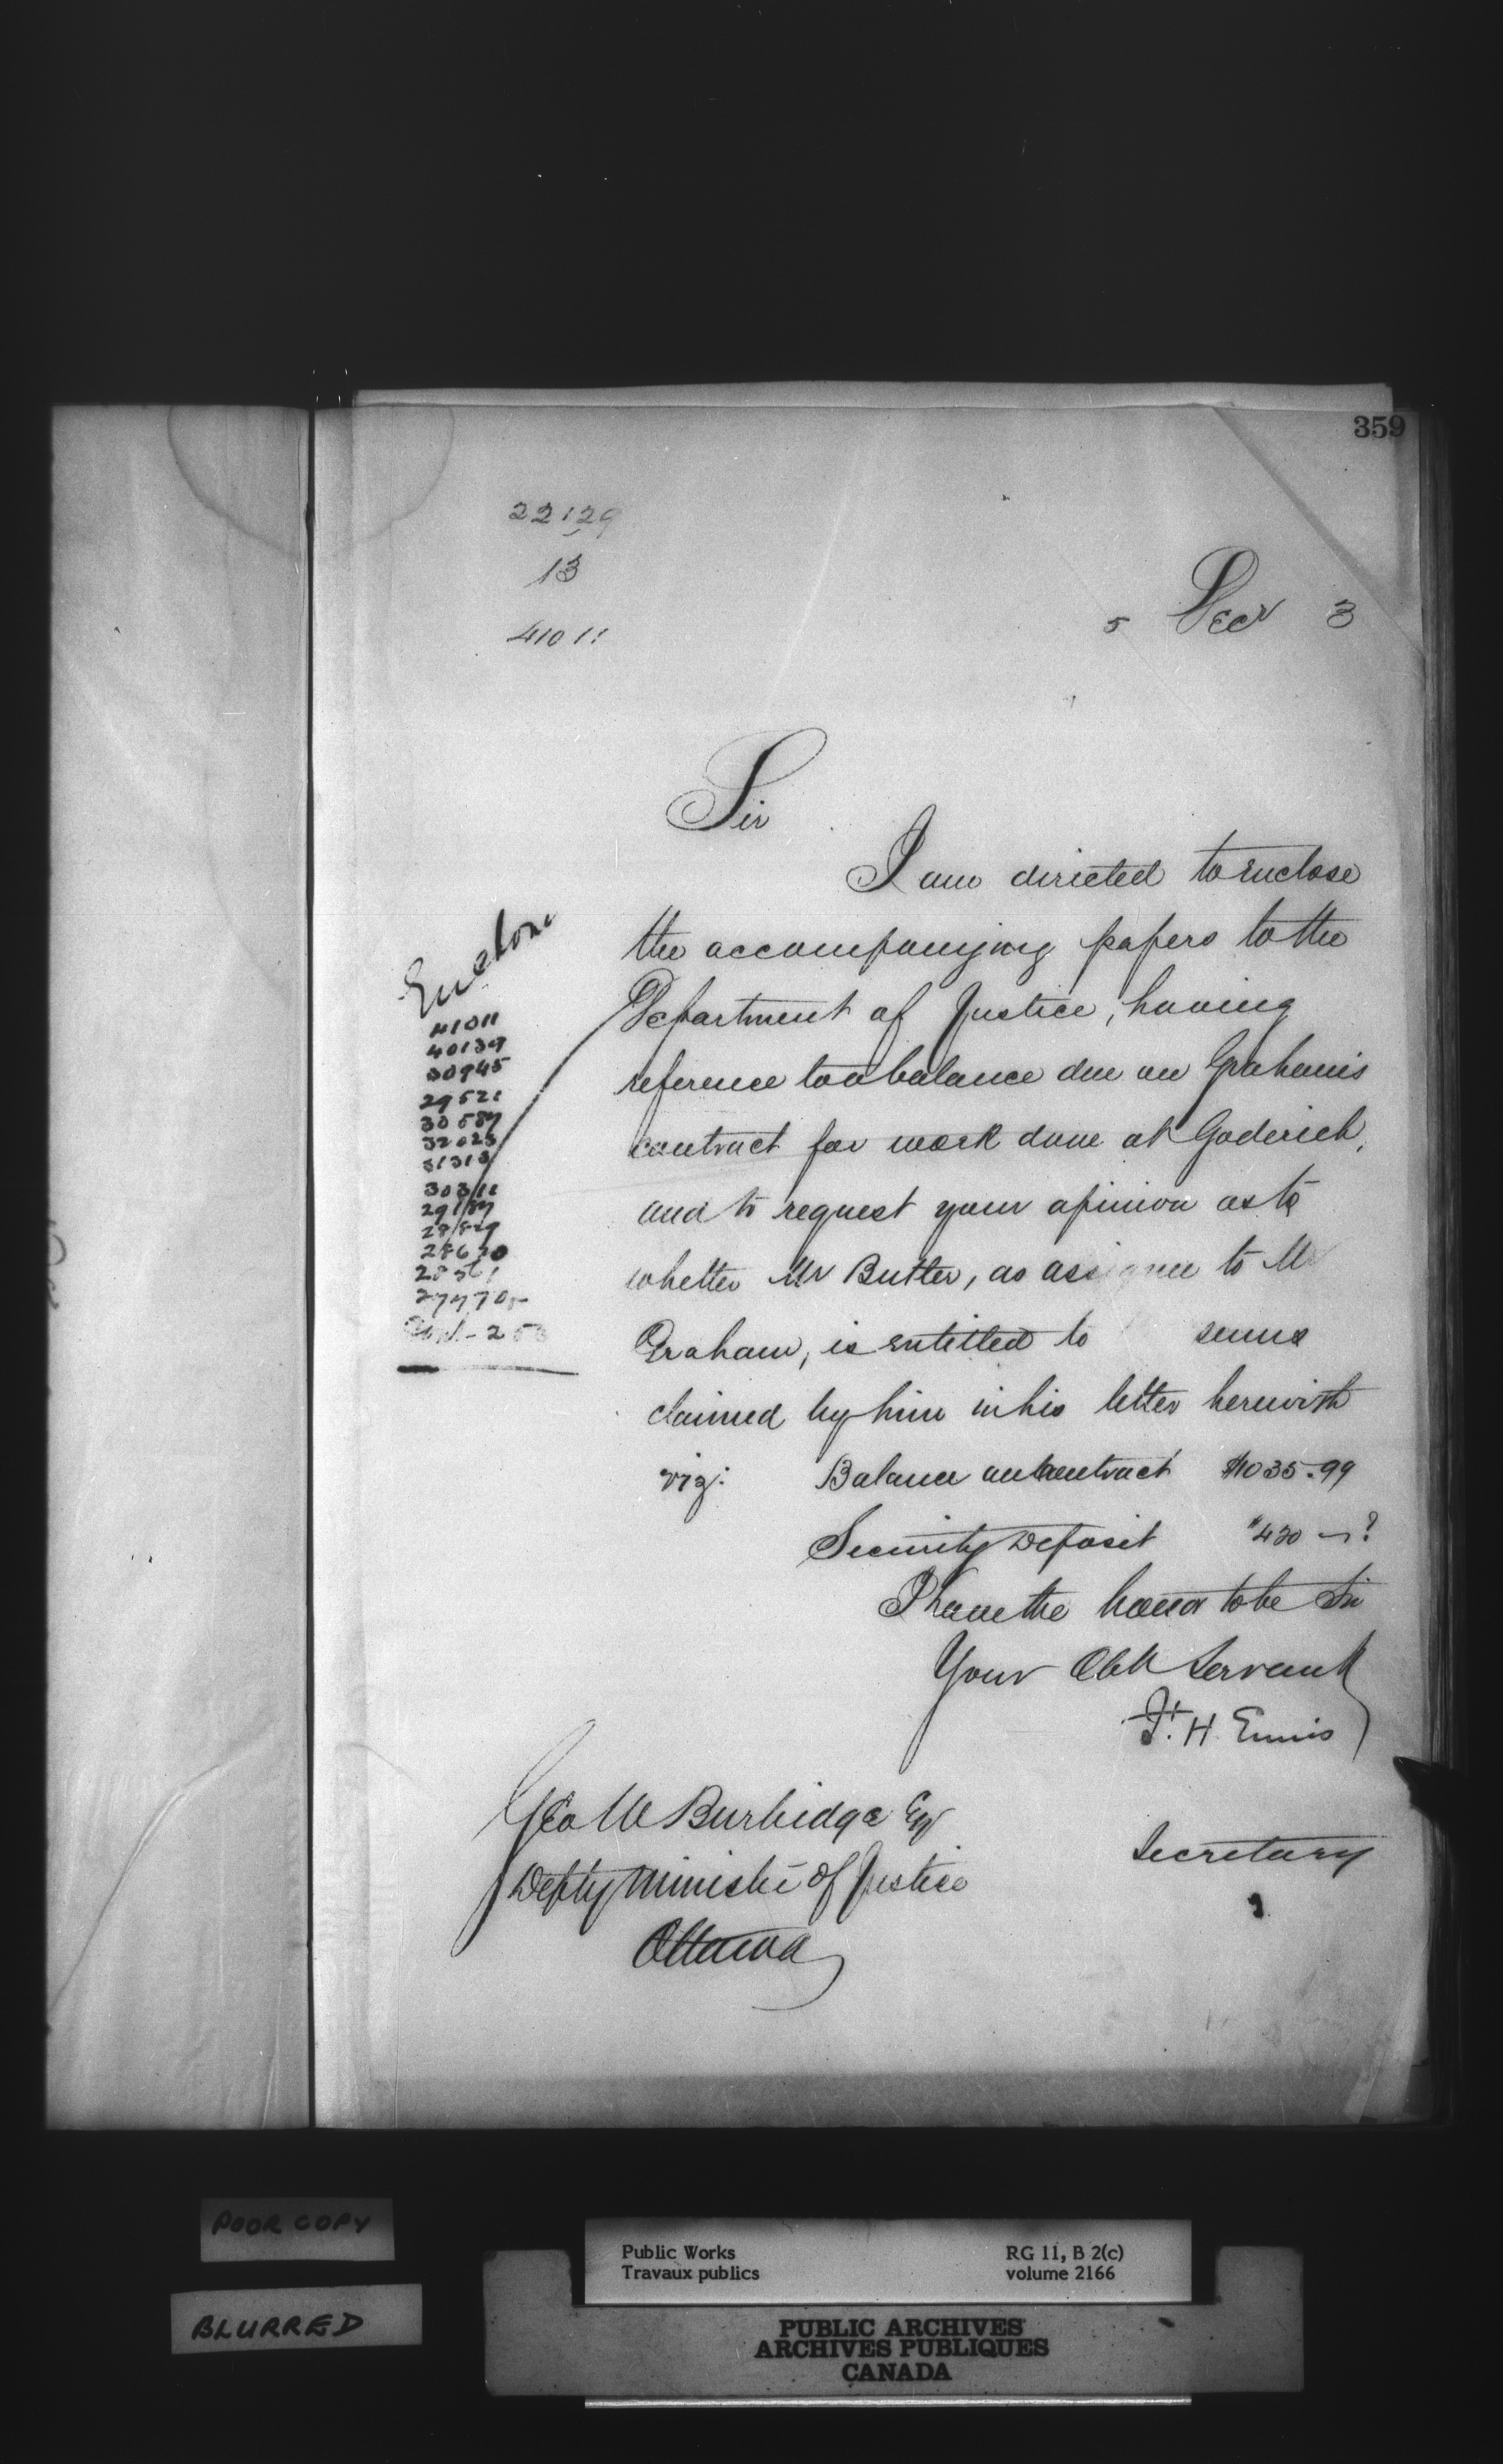 359
22129
13
41011
5 Decr 3
Sir
I am directed to enclose
the accompanying papers to the
Department of Justice, having
reference to a balance due on Graham's
contract for work done at Goderich,
and to request your opinion as to
whether Mr Butler, as assignee to Mr
Graham, is entitled to sums
claimed by him in his letter herewith
viz: Balance on contract $1035.99
Security Deposit "430 — ?
I have the honor to be Sir
Your Obt Servant
F. H. Ennis
Secretary
Enclose
41011
40139
30945
29521
30589
32023
31313
30311
29189
28829
28620
28561
27770
253
Geo W Burbidge Esq
Depty Minister of Justice
Ottawa
POOR COPY
BLURRED
Public Works
Travaux publics
RG 11, B 2(c)
volume 2166
PUBLIC ARCHIVES
ARCHIVES PUBLIQUES
CANADA